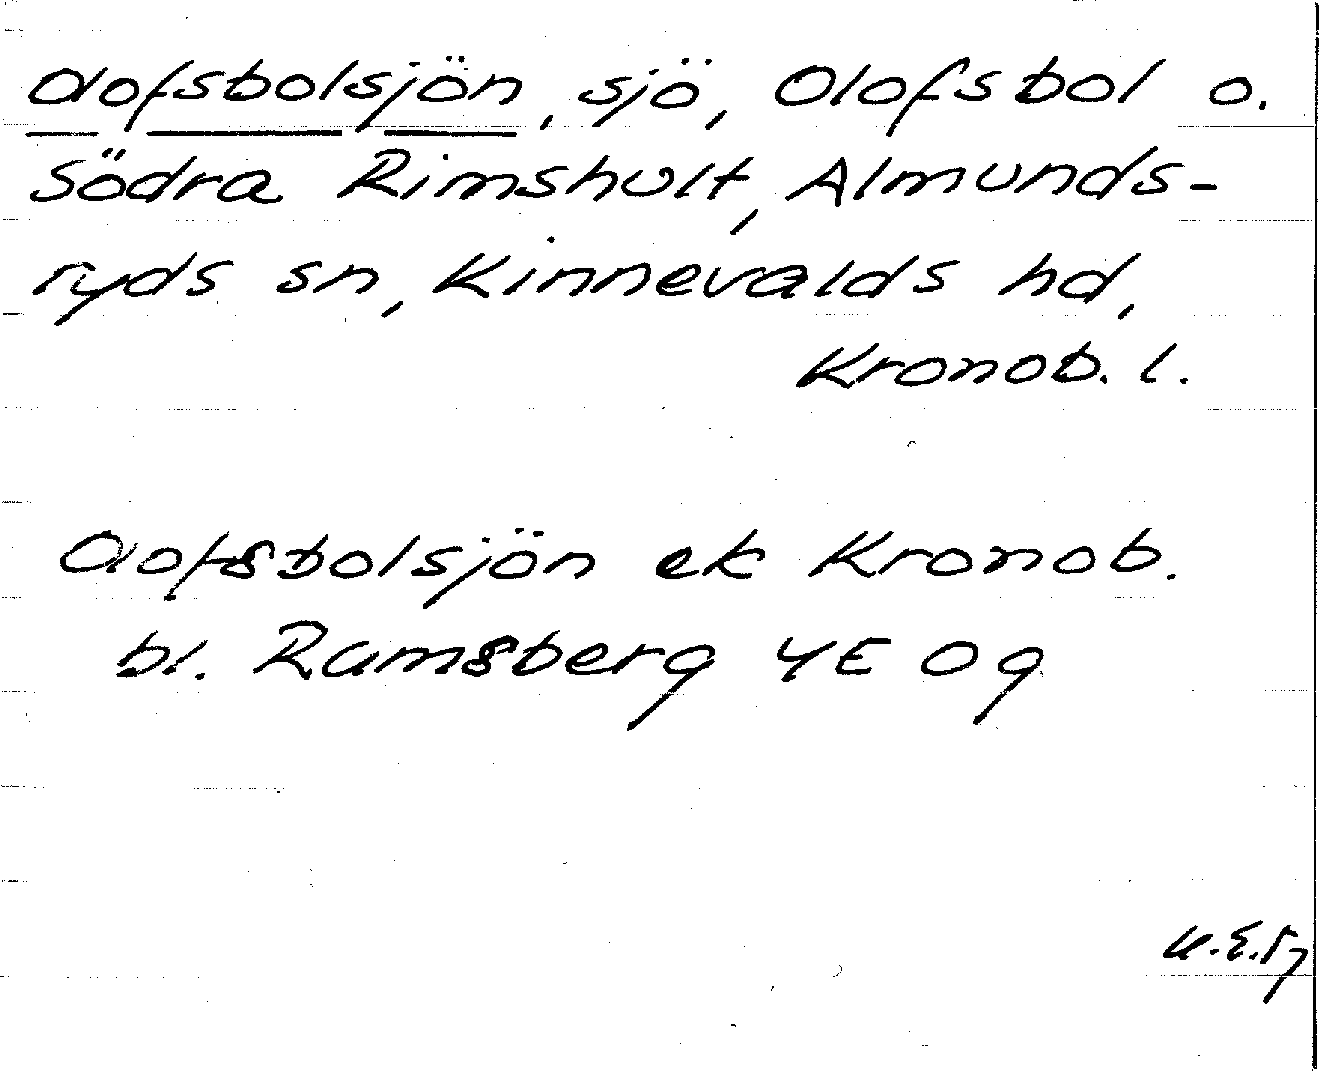 Olofsbolsjön, sjö, Olofsbol o.
Södra Rimshult, Almunds-
ryds sn, Kinnevalds hd,
Kronob. l.
Olofsbolsjön ek Kronob.
bl. Ramsberg 4E Og